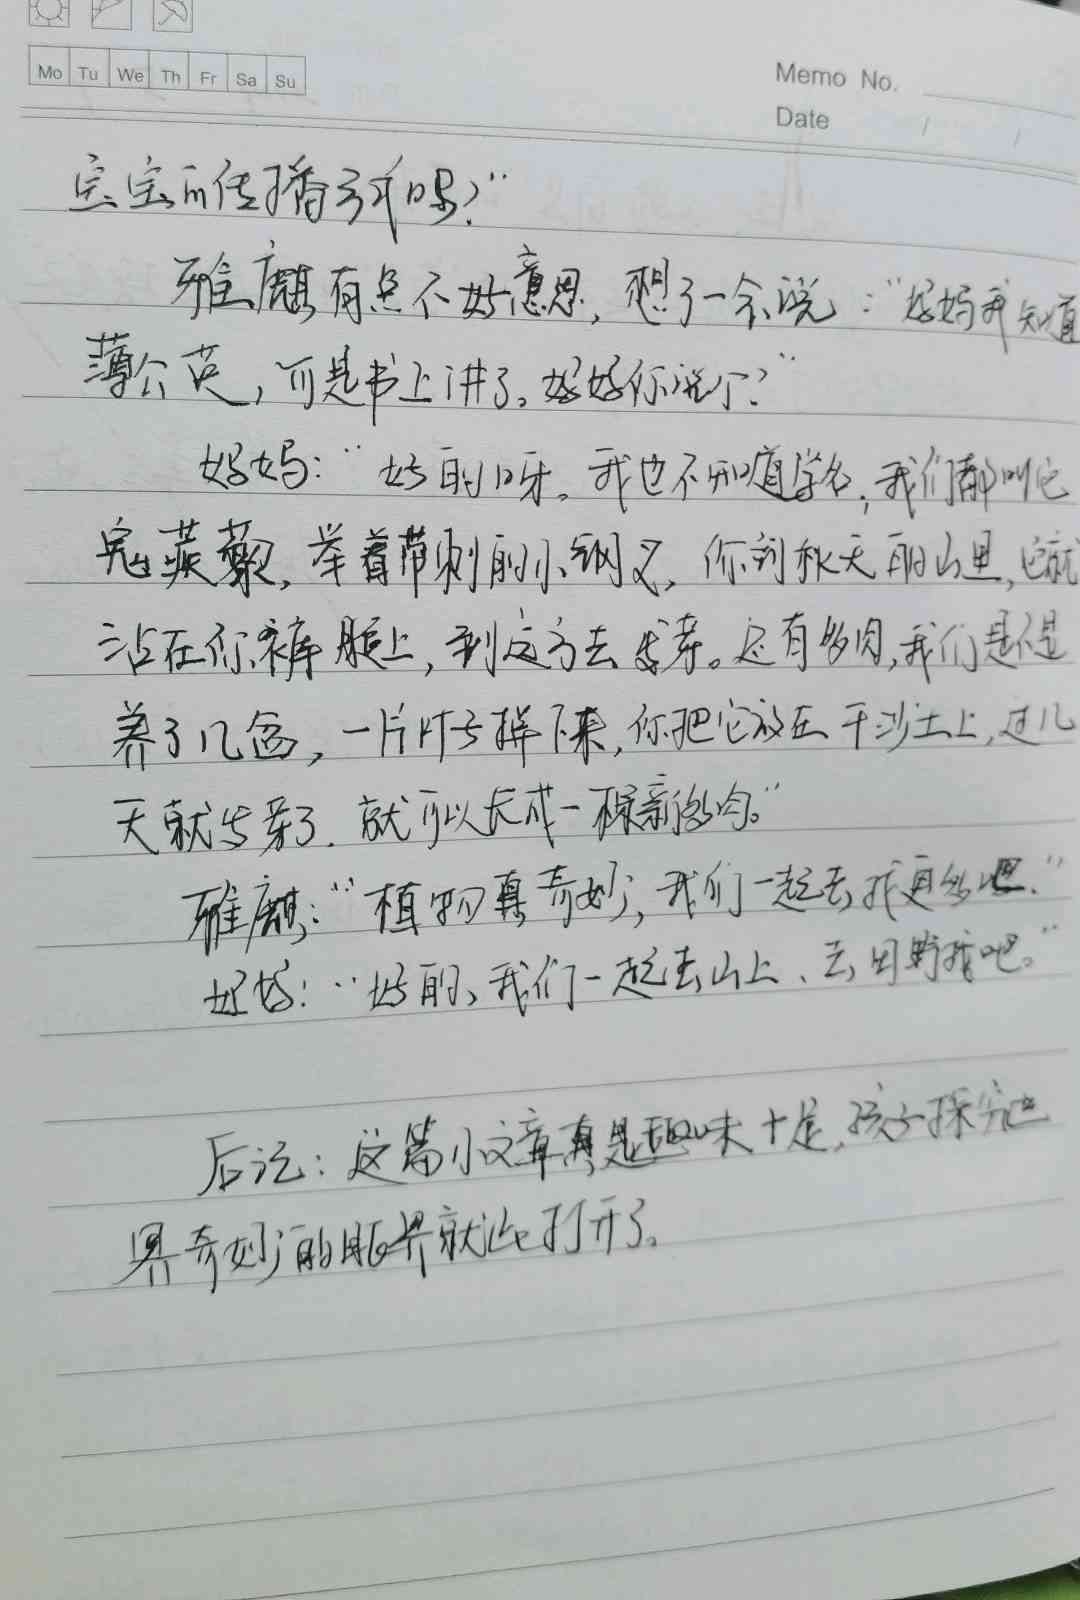 Mo Tu We Th Fr Sa Su
Memo No.
Date / /
宝宝的传播方式吗？”
雅麒有点不好意思，想了一会说：“妈妈我知道
薄公英，可是书上讲了。妈妈你说个？”
妈妈：“好的呀。我也不知道学名，我们都叫它
鬼蒺藜，举着带刺的小钢叉，你到秋天的山里，它就
沾在你裤腿上，到远方去发芽。还有多肉，我们是不是
养了几盆，一片叶子掉下来，你把它放在干沙土上，过几
天就发芽了．就可以长成一棵新多肉。”
雅麒：“植物真奇妙，我们一起去找更多吧．”
妈妈：“好的、我们一起去山上、去田野找吧。”
后记：这篇小文章真是趣味十足，孩子探究世
界奇妙的眼界就此打开了。